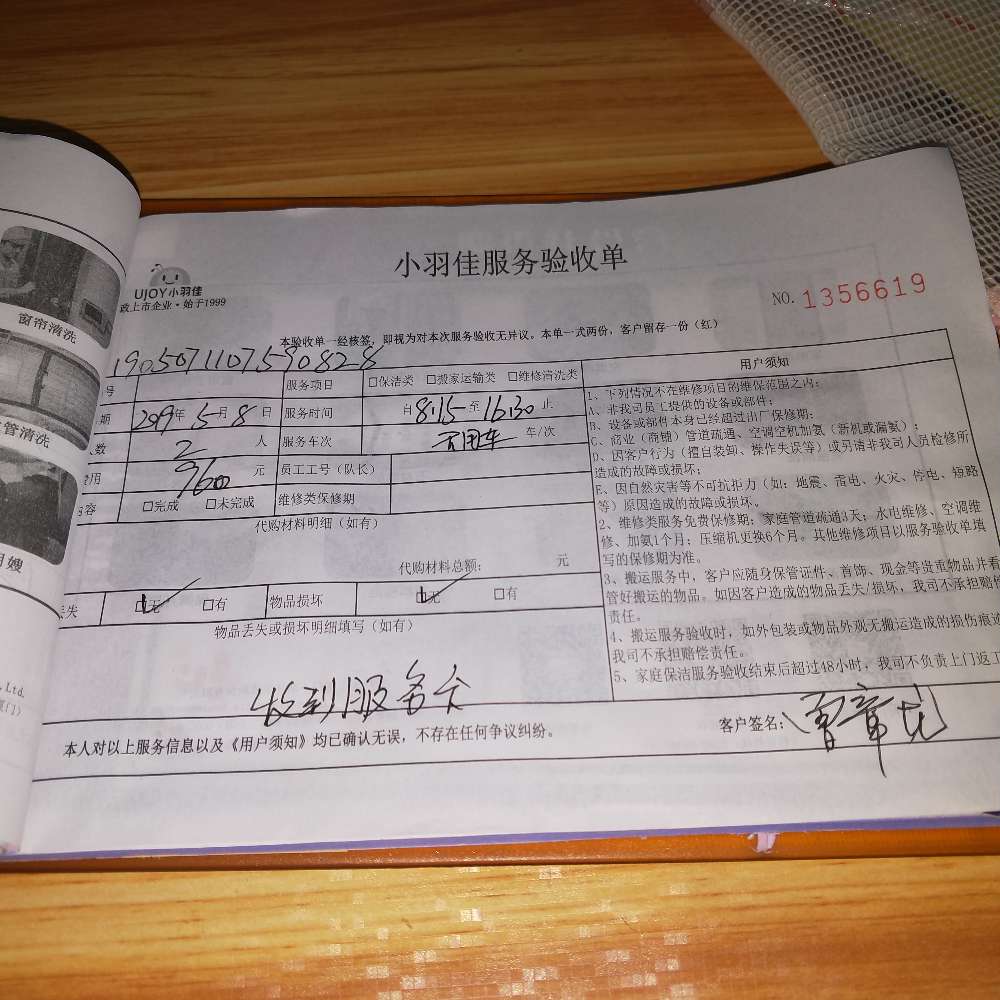 小羽佳服务验收单
UJOY小羽佳
政上市企业·始于1999
NO. 1356619
窗帘清洗
管清洗
月嫂
Ltd.
本验收单一经核签，即视为对本次服务验收无异议。本单一式两份，客户留存一份（红）
190507110759082 8
号 服务项目 □保洁类 □搬家运输类 □维修清洗类
期 2019年5月8日 服务时间 自8:15至16:30止
人数 2 人 服务车次 无用车 车/次
费用 960 元 员工工号（队长）
内容 □完成 □未完成 维修类保修期
代购材料明细（如有）
代购材料总额： 元
丢失 □无 □有 物品损坏 □无 □有
物品丢失或损坏明细填写（如有）
收到服务卡
用户须知
1、下列情况不在维修项目的维保范围之内：
A、非我司员工提供的设备或部件；
B、设备或部件本身已经超过出厂保修期；
C、商业（商铺）管道疏通、空调空机加氨（新机或漏氨）；
D、因客户行为（擅自装卸、操作失误等）或另请非我司人员检修所
造成的故障或损坏；
E、因自然灾害等不可抗拒力（如：地震、雷电、火灾、停电、短路
等）原因造成的故障或损坏。
2、维修类服务免费保修期：家庭管道疏通3天；水电维修、空调维
修、加氨1个月；压缩机更换6个月。其他维修项目以服务验收单填
写的保修期为准。
3、搬运服务中，客户应随身保管证件、首饰、现金等贵重物品并看
管好搬运的物品。如因客户造成的物品丢失/损坏，我司不承担赔偿
责任。
4、搬运服务验收时，如外包装或物品外观无搬运造成的损伤痕迹
我司不承担赔偿责任。
5、家庭保洁服务验收结束后超过48小时，我司不负责上门返工
本人对以上服务信息以及《用户须知》均已确认无误，不存在任何争议纠纷。
客户签名：